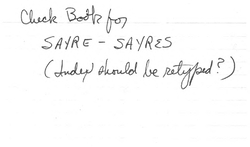 Check Book for
SAYRE - SAYRES
(Index should be retyped?)